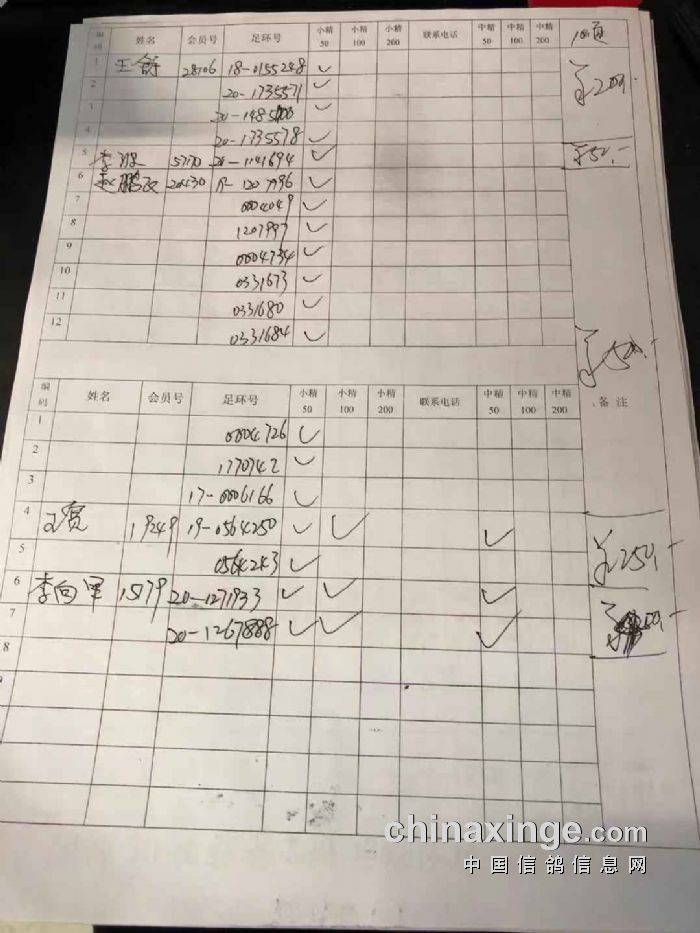 编码 姓名 会员号 足环号 小精50 小精100 小精200 联系电话 中精50 中精100 中精200
1 王 28106 18-0155248 ✓ ¥200.-
2 20-1735571 ✓
3 20-
4 20-1735578 ✓
5 李 57170 20-1141694 ✓ ¥50.-
6 赵鹏 20430 1207996 ✓
7 0004049 ✓
8 1207997 ✓
9 0004734 ✓
10 0331673 ✓
11 0331680 ✓
12 0331684 ✓
编码 姓名 会员号 足环号 小精50 小精100 小精200 联系电话 中精50 中精100 中精200 备注
1 0004726 ✓
2 1770742 ✓
3 17-0006166 ✓
4 19249 19-0564250 ✓ ✓ ✓ ¥250.-
5 0564243 ✓
6 李向军 1579 20-1271933 ✓ ✓ ✓
7 20-1267888 ✓ ✓ ✓
8
chinaxinge.com
中国信鸽信息网